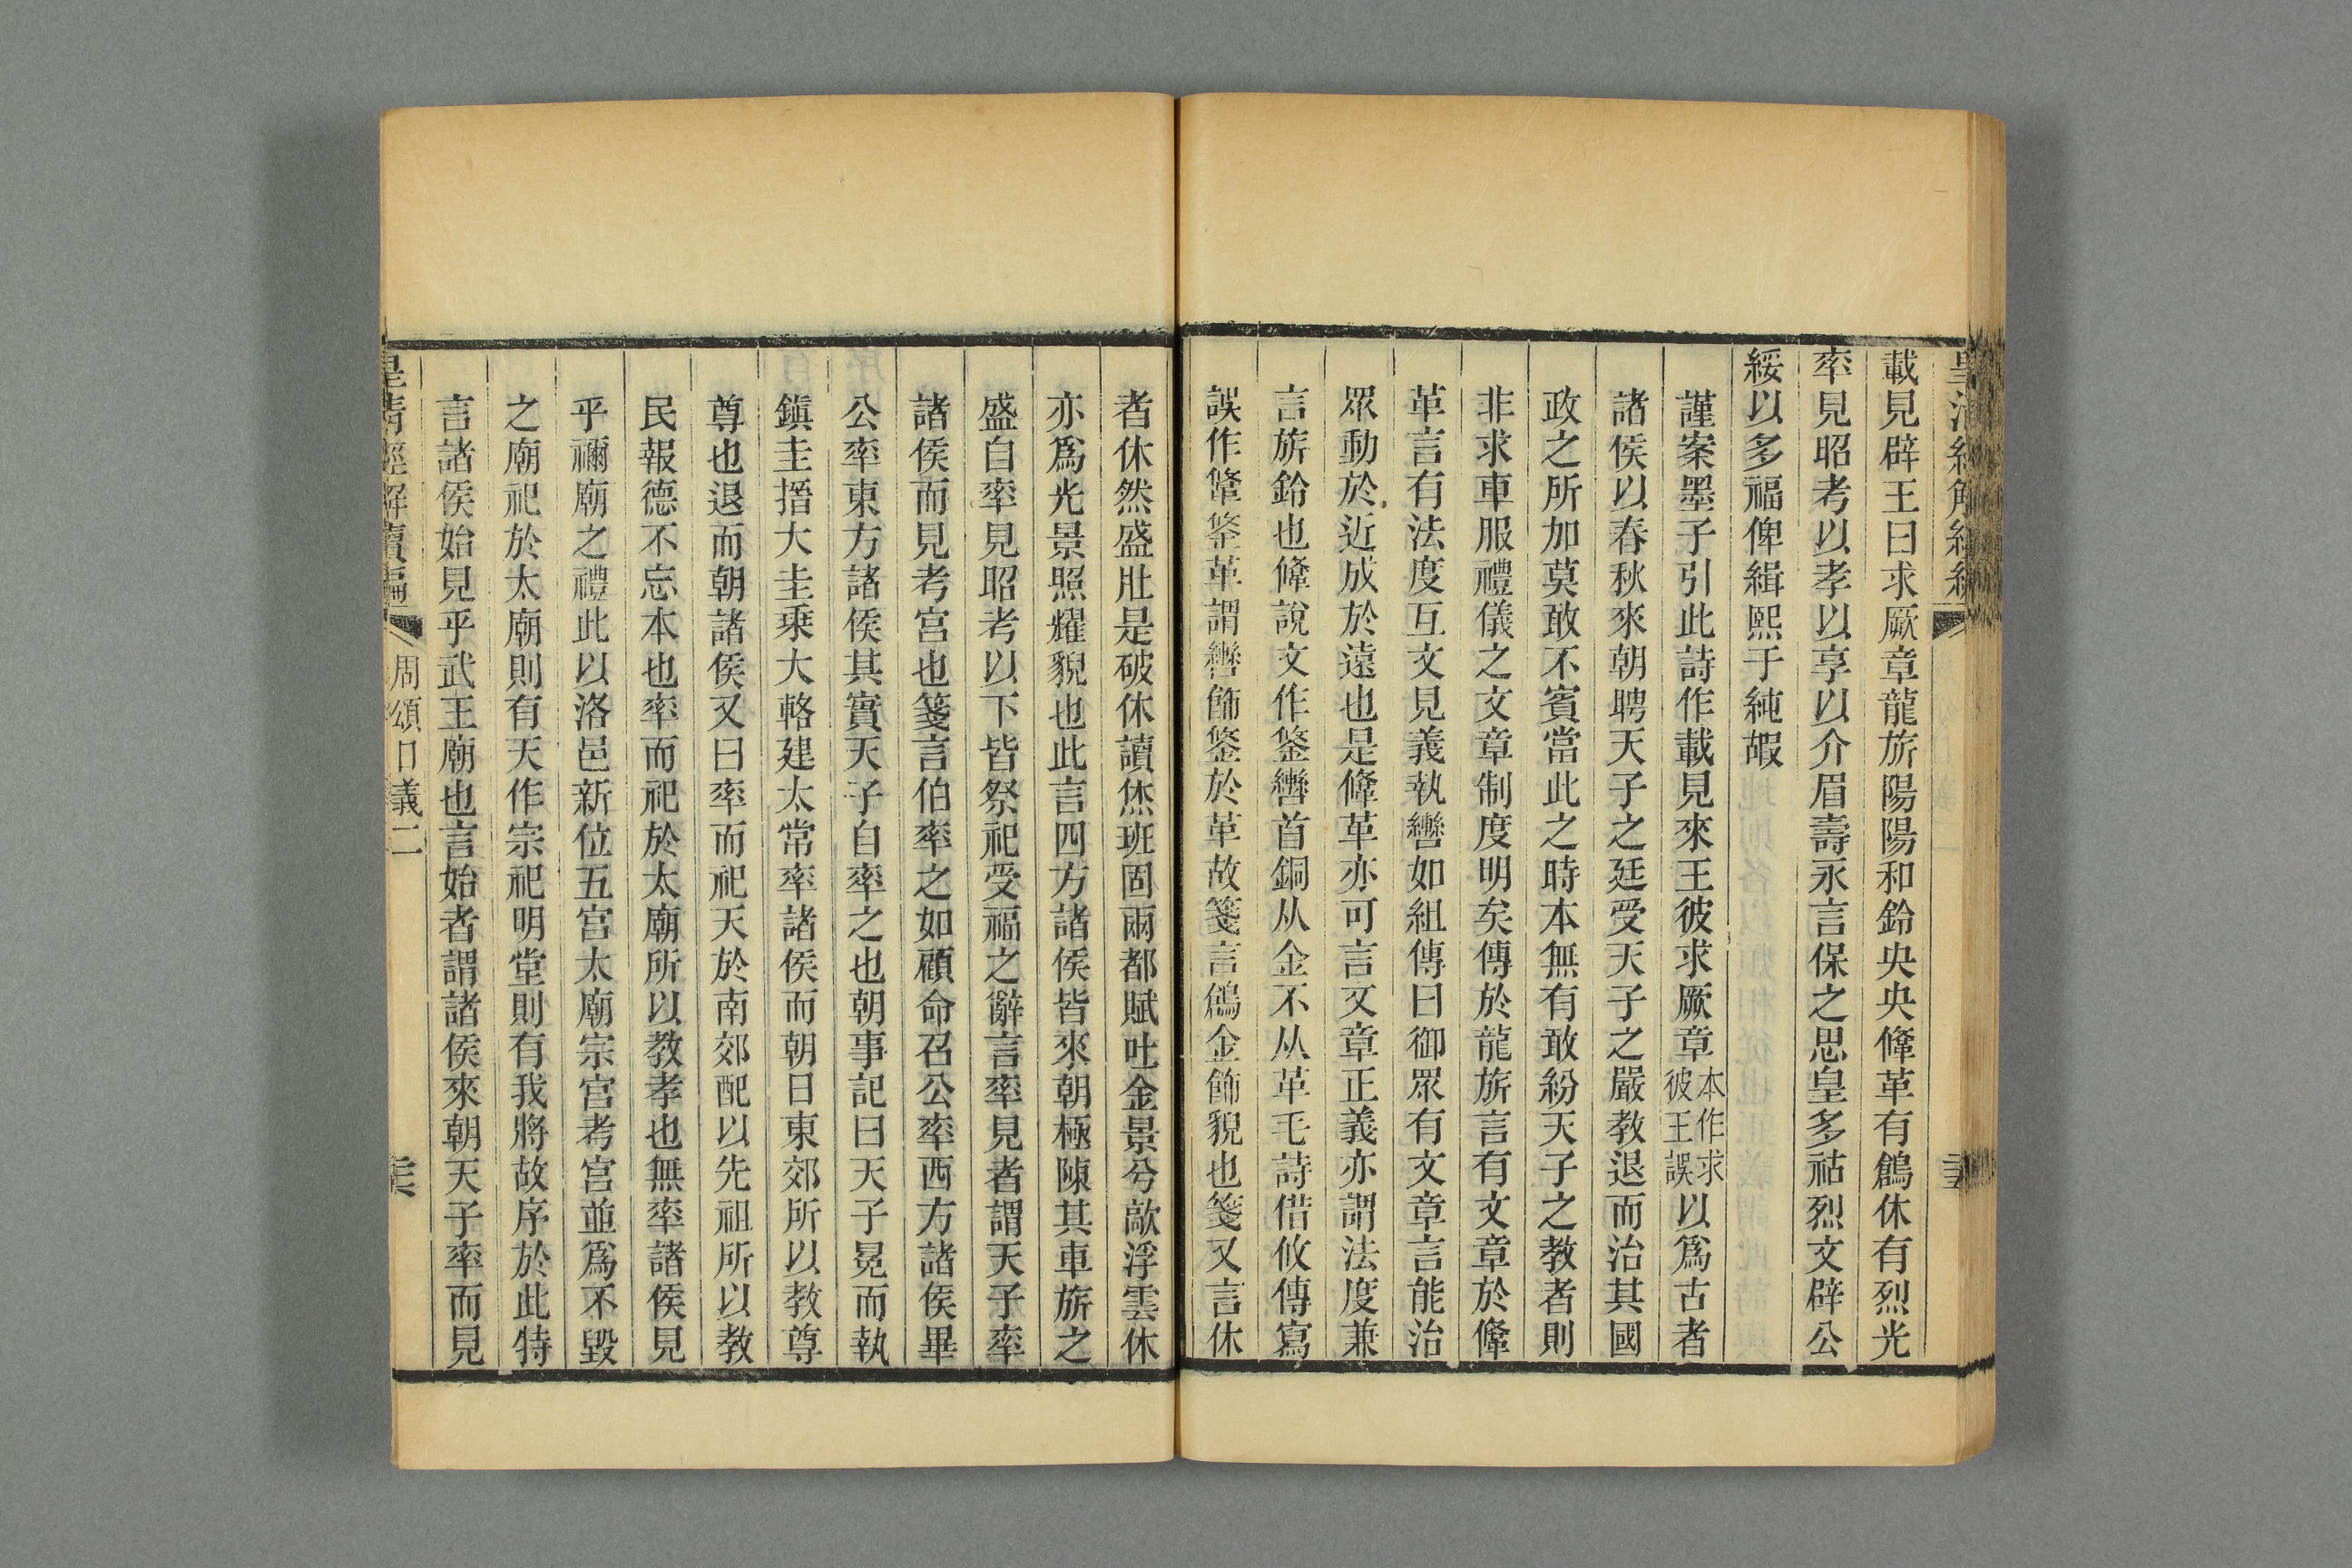 載見辟王曰求厥章龍旂陽陽和鈴央央鞗革有鶬休有烈光
率見昭考以孝以享以介眉壽永言保之思皇多祜烈文辟公
綏以多福俾緝熙于純嘏
謹案墨子引此詩作載見來王彼求厥章本作求彼王誤以爲古者
諸侯以春秋來朝聘天子之廷受天子之嚴教退而治其國
政之所加莫敢不賓當此之時本無有敢紛天子之教者則
非求車服禮儀之文章制度明矣傳於龍旂言有文章於鞗
革言有法度互文見義執轡如組傳曰御眾有文章言能治
眾動於近成於遠也是鞗革亦可言文章正義亦謂法度兼
言旂鈴也鞗說文作鋚轡首銅从金不从革毛詩借攸傳寫
誤作鞗鋚革謂轡飾鋚於革故箋言鶬金飾貌也箋又言休
者休然盛壯是破休讀烋班固兩都賦吐金景兮歊浮雲休
亦爲光景照耀貌也此言四方諸侯皆來朝極陳其車旂之
盛自率見昭考以下皆祭祀受福之辭言率見者謂天子率
諸侯而見考宮也箋言伯率之如顧命召公率西方諸侯畢
公率東方諸侯其實天子自率之也朝事記曰天子冕而執
鎭圭搢大圭乘大輅建太常率諸侯而朝日東郊所以教尊
尊也退而朝諸侯又曰率而祀天於南郊配以先祖所以教
民報德不忘本也率而祀於太廟所以教孝也無率諸侯見
乎禰廟之禮此以洛邑新位五宮太廟宗宮考宮並爲不毀
之廟祀於太廟則有天作宗祀明堂則有我將故序於此特
言諸侯始見乎武王廟也言始者謂諸侯來朝天子率而見
皇清經解續編
周頌口義二